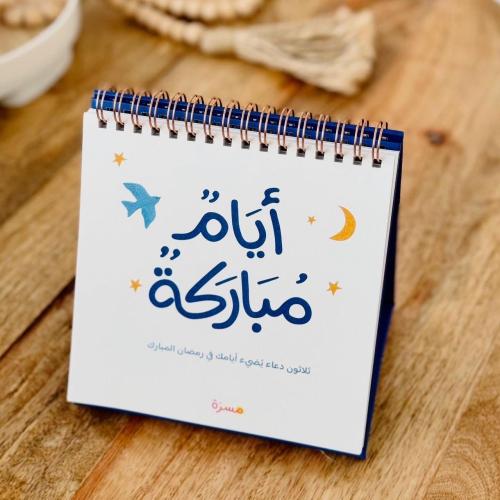 أَيَامٌ
مُبَارَكَةٌ
ثلاثون دعاء يُضيء أيامك في رمضان المبارك
مسرّة